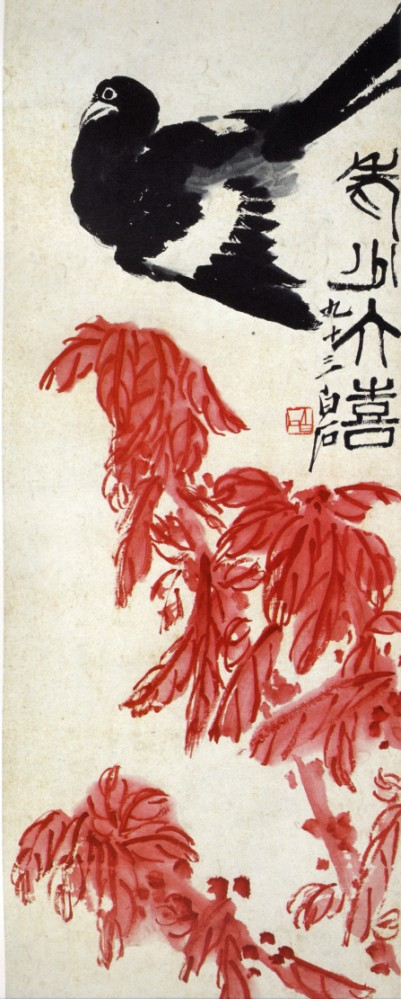 老少大喜
九十三白石